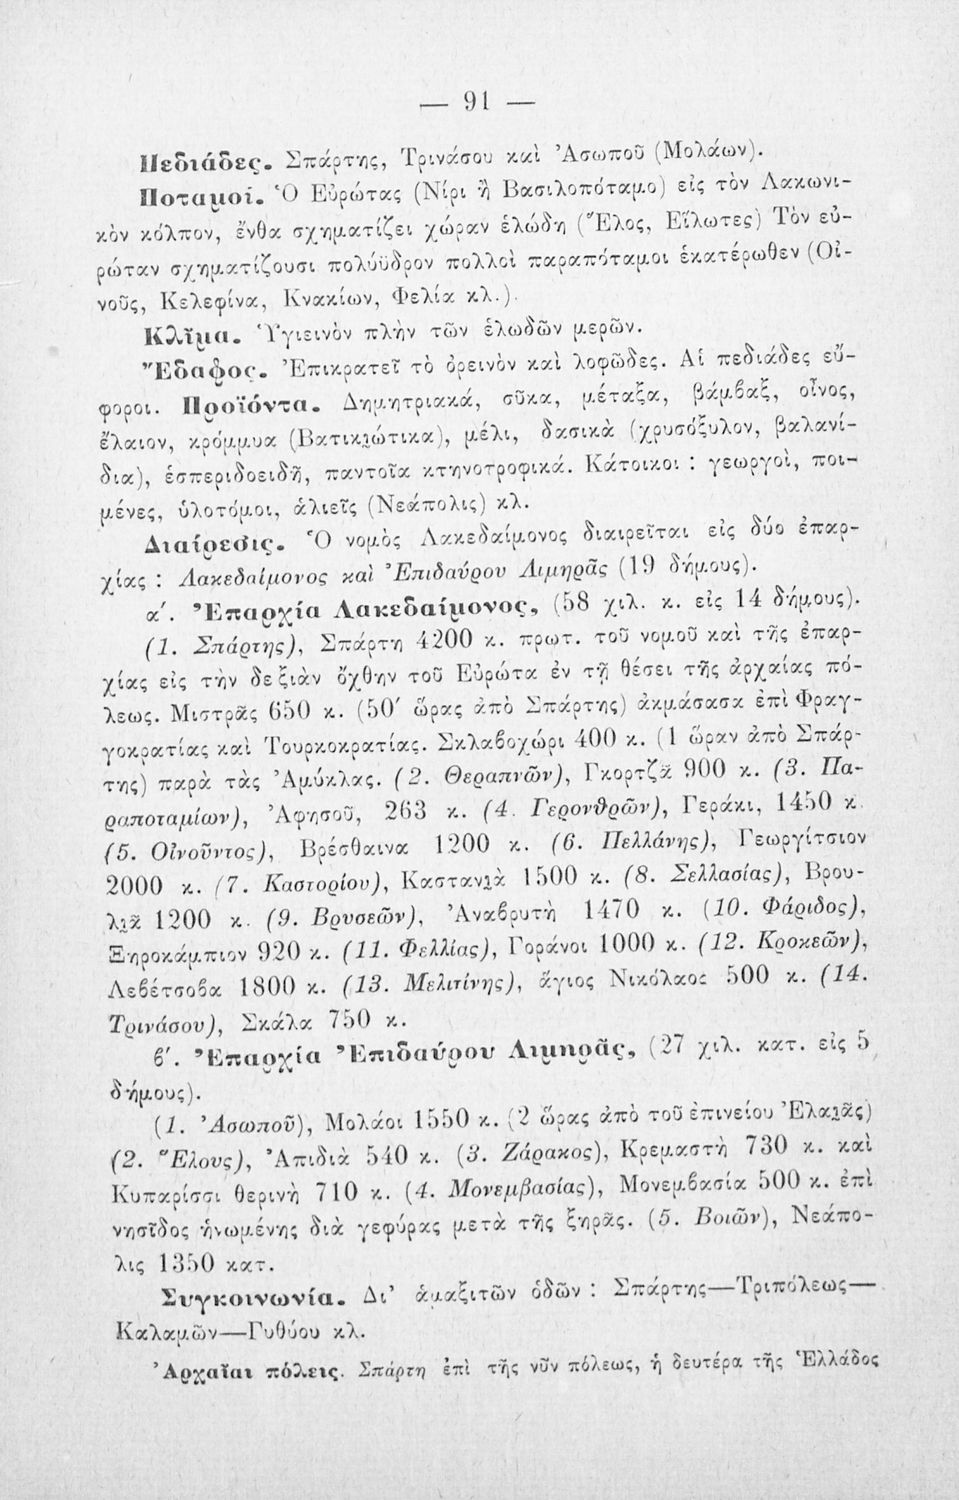 — 91 —
Πεδιάδες. Σπάρτης, Τρινάσου καὶ Ἀσωποῦ (Μολάων).
Ποταμοί. Ὁ Εὐρώτας (Νίρι ἢ Βασιλοπόταμο) εἰς τὸν Λακωνι-
κὸν κόλπον, ἔνθα σχηματίζει χώραν ἑλώδη (Ἕλος, Εἵλωτες) Τὸν εὐ-
ρώταν σχηματίζουσι πολύϋδρον πολλοὶ παραπόταμοι ἑκατέρωθεν (Οἰ-
νοῦς, Κελεφίνα, Κνακίων, Φελία κλ.).
Κλῖμα. Ὑγιεινὸν πλὴν τῶν ἑλωδῶν μερῶν.
Ἔδαφος. Ἐπικρατεῖ τὸ ὀρεινὸν καὶ λοφῶδες. Αἱ πεδιάδες εὔ-
φοροι. Προϊόντα. Δημητριακά, σῦκα, μέταξα, βάμβαξ, οἶνος,
ἔλαιον, κρόμμυα (Βατικιώτικα), μέλι, δασικὰ (χρυσόξυλον, βαλανί-
δια), ἑσπεριδοειδῆ, παντοῖα κτηνοτροφικά. Κάτοικοι : γεωργοὶ, ποι-
μένες, ὑλοτόμοι, ἁλιεῖς (Νεάπολις) κλ.
Διαίρεσις. Ὁ νομὸς Λακεδαίμονος διαιρεῖται εἰς δύο ἐπαρ-
χίας : Λακεδαίμονος καὶ Ἐπιδαύρου Λιμηρᾶς (19 δήμους).
α΄. Ἐπαρχία Λακεδαίμονος, (58 χιλ. κ. εἰς 14 δήμους).
(1. Σπάρτης), Σπάρτη 4200 κ. πρωτ. τοῦ νομοῦ καὶ τῆς ἐπαρ-
χίας εἰς τὴν δεξιὰν ὄχθην τοῦ Εὐρώτα ἐν τῇ θέσει τῆς ἀρχαίας πό-
λεως. Μιστρᾶς 650 κ. (50′ ὥρας ἀπὸ Σπάρτης) ἀκμάσασα ἐπὶ Φραγ-
γοκρατίας καὶ Τουρκοκρατίας. Σκλαβοχώρι 400 κ. (1 ὥραν ἀπὸ Σπάρ-
της) παρὰ τὰς Ἀμύκλας. (2. Θεραπνῶν), Γκορτζᾶ 900 κ. (3. Πα-
ραποταμίων), Ἀφησοῦ, 263 κ. (4. Γερονθρῶν), Γεράκι, 1450 κ.
(5. Οἰνοῦντος), Βρέσθαινα 1200 κ. (6. Πελλάνης), Γεωργίτσιον
2000 κ. (7. Καστορίου), Καστανιὰ 1500 κ. (8. Σελλασίας), Βρου-
λιᾶ 1200 κ. (9. Βρυσεῶν), Ἀναβρυτὴ 1470 κ. (10. Φάριδος),
Ξηροκάμπιον 920 κ. (11. Φελλίας), Γοράνοι 1000 κ. (12. Κροκεῶν),
Λεβέτσοβα 1800 κ. (13. Μελιτίνης), ἅγιος Νικόλαος 500 κ. (14.
Τρινάσου), Σκάλα 750 κ.
β΄. Ἐπαρχία Ἐπιδαύρου Λιμηρᾶς, (27 χιλ. κατ. εἰς 5
δήμους).
(1. Ἀσωποῦ), Μολάοι 1550 κ. (2 ὥρας ἀπὸ τοῦ ἐπινείου Ἐλαιᾶς)
(2. Ἕλους), Ἀπιδιὰ 540 κ. (3. Ζάρακος), Κρεμαστὴ 730 κ. καὶ
Κυπαρίσσι θερινὴ 710 κ. (4. Μονεμβασίας), Μονεμβασία 500 κ. ἐπὶ
νησῖδος ἡνωμένης διὰ γεφύρας μετὰ τῆς ξηρᾶς. (5. Βοιῶν), Νεάπο-
λις 1350 κατ.
Συγκοινωνία. Δι' ἁμαξιτῶν ὁδῶν : Σπάρτης—Τριπόλεως—
Καλαμῶν—Γυθύου κλ.
Ἀρχαῖαι πόλεις. Σπάρτη ἐπὶ τῆς νῦν πόλεως, ἡ δευτέρα τῆς Ἑλλάδος